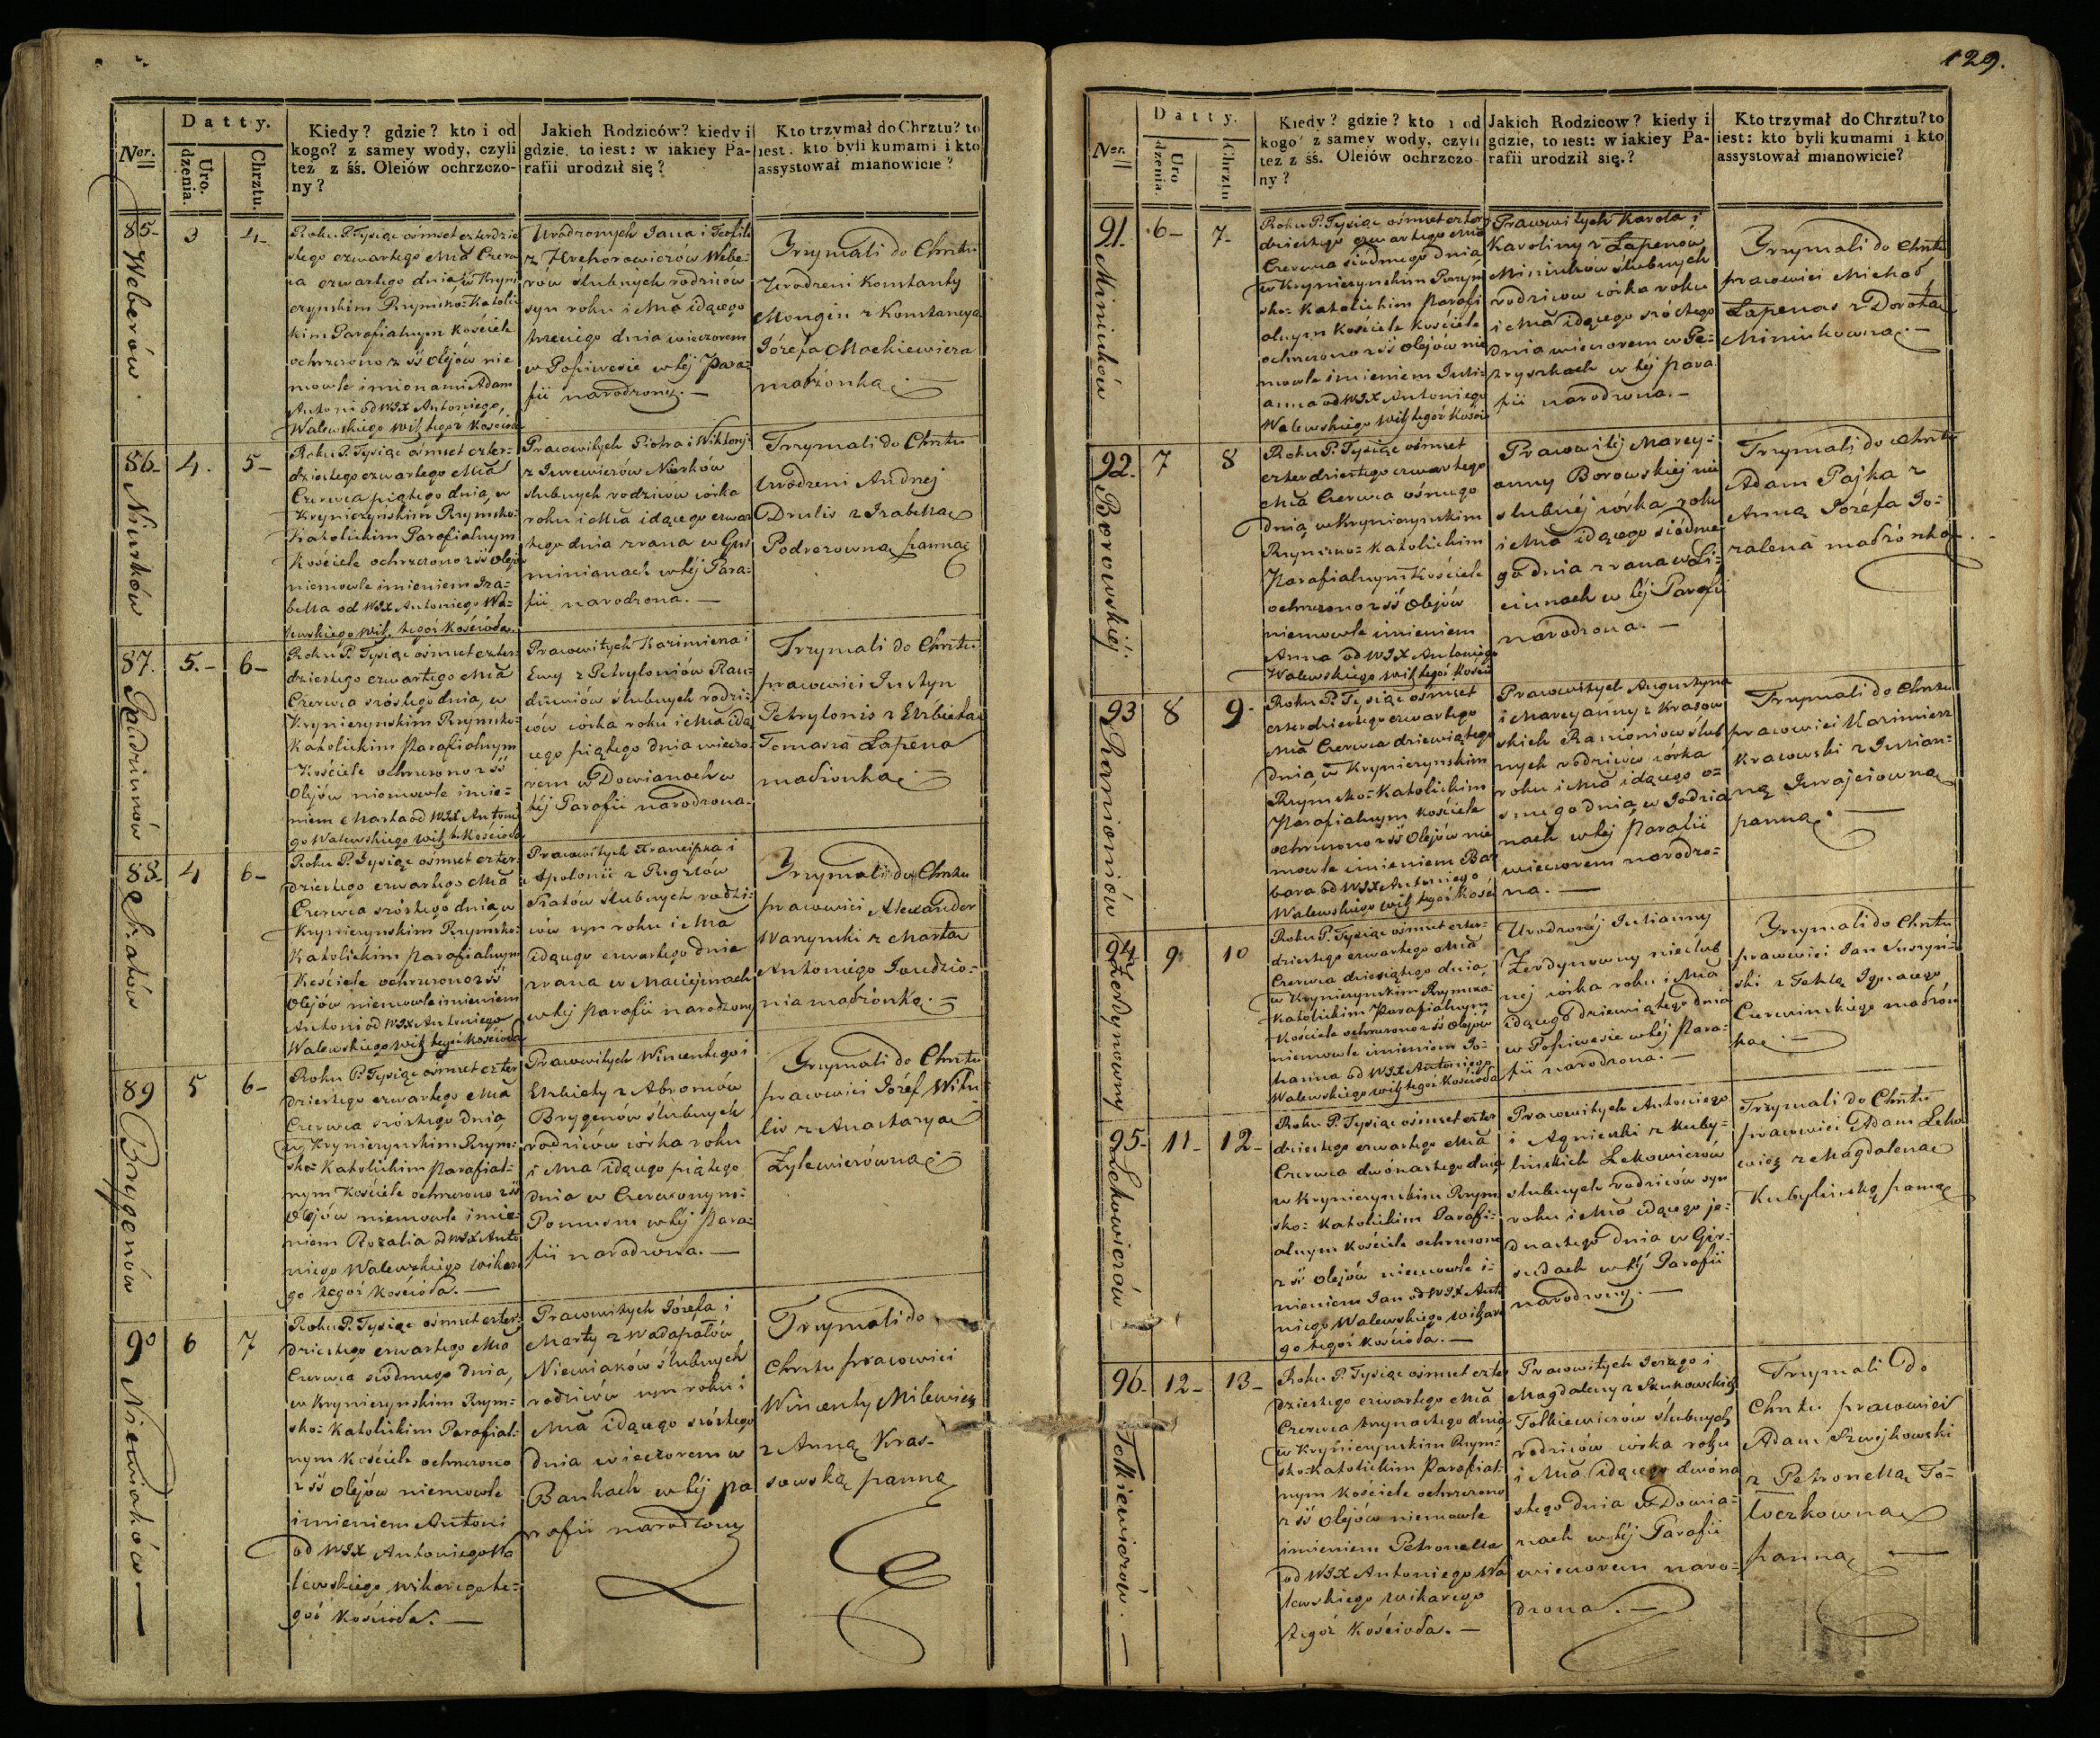 129.
Nor.
Datty.
Uro-
dzenia.
Chrztu.
Kiedy? gdzie? kto i od
kogo? z samey wody, czyli
też z śś. Oleiów ochrzczo-
ny?
Jakich Rodziców? kiedy i
gdzie, to iest: w iakiey Pa-
rafii urodził się?
Kto trzymał do Chrztu? to
iest: kto byli kumami i kto
assystował mianowicie?
85-
Weberów.
3
4-
Roku P. Tysiąc ośmset czterdzie
stego czwartego Mca Czerw
ca czwartego dnia, w Kryni
czyńskim Rzymsko-Katolic
kim Parafialnym Kościele
ochrzczono z śś Olejów nie
mowle imionami Adam
Antoni od WJX Antoniego
Walewskiego Wik. tegoż Kościoła
Urodzonych Jana i Teofili
z Hrehorowiczów Webe-
rów ślubnych rodziców
syn roku i Mca idącego
trzeciego dnia wieczorem
w Popiwesie w téj Para-
fii narodzony.—
Trzymali do Chrztu
Urodzeni Konstanty
Mongin z Konstancyą
Józefa Mackiewicza
małżonką.—
86-
Niurków
4.
5-
Roku P. Tysiąc ośmset czter-
dziestego czwartego Mca
Czerwca piątego dnia, w
Kryniczyńskim Rzymsko-
Katolickim Parafialnym
Kościele ochrzczono z śś Olejów
niemowle imieniem Iza-
bella od WJX Antoniego Wa-
lewskiego Wik. tegoż Kościoła.
Pracowitych Piotra i Wiktoryi
z Jurewiczów Niurków
ślubnych rodziców córka
roku i Mca idącego czwar
tego dnia zrana w Gu
minianach w téj Para-
fii narodzona.—
Trzymali do Chrztu
Urodzeni Andrzej
Drulis z Izabellą
Podrezowną panną
87.
Raudziunów
5.-
6-
Roku P. Tysiąc ośmset czter-
dziestego czwartego Mca
Czerwca szóstego dnia, w
Kryniczyńskim Rzymsko-
Katolickim Parafialnym
Kościele ochrzczono z śś
Olejów niemowle imie-
niem Marta od WJX Antonie
go Walewskiego Wik. t. Kościoła
Pracowitych Kazimierza i
Ewy z Petryloniów Rau-
dziunów ślubnych rodzi-
ców córka roku i Mca idą
cego piątego dnia wieczo-
rem w Dowianach w
téj Parafii narodzona.
Trzymali do Chrztu
pracowici Justyn
Petrylonis z Elżbietą
Tomasza Łapena
małżonką.—
88-
Szatów
4
6-
Roku P. Tysiąc ośmset czter-
dziestego czwartego Mca
Czerwca szóstego dnia, w
Kryniczyńskim Rzymsko-
Katolickim Parafialnym
Kościele ochrzczono z śś
Olejów niemowle imieniem
Antoni od WJX Antoniego
Walewskiego Wik. tegoż Kościoła
Pracowitych Franciszka i
Apolonii z Rugztów
Szatów ślubnych rodzi-
ców syn roku i Mca
idącego czwartego dnia
zrana w Maciejunach
w téj Parafii narodzony
Trzymali do Chrztu
pracowici Alexander
Warzyński z Martą
Antoniego Jaudzio-
nia małżonką.—
89
Brygenów
5
6-
Roku P. Tysiąc ośmset czter
dziestego czwartego Mca
Czerwca szóstego dnia,
w Kryniczyńskim Rzym-
sko-Katolickim Parafial-
nym Kościele ochrzczono z śś
Olejów niemowle imie-
niem Rozalia od WJX Anto
niego Walewskiego wikare
go tegoż Kościoła.—
Pracowitych Wincentego i
Elżbiety z Abromów
Brygenów ślubnych
rodziców córka roku
i Mca idącego piątego
dnia w Czerwonym-
Pomuszu w téj Para-
fii narodzona.—
Trzymali do Chrztu
pracowici Józef Witu
lis z Anastazyą
Żylewiczówną.—
90
Niewiaków—
6
7
Roku P. Tysiąc ośmset czter-
dziestego czwartego Mca
Czerwca siódmego dnia,
w Kryniczyńskim Rzym-
sko-Katolickim Parafial-
nym Kościele ochrzczono
z śś Olejów niemowle
imieniem Antoni
od WJX Antoniego Wa
lewskiego wikarego te-
goż Kościoła.—
Pracowitych Józefa i
Marty z Wadapałów
Niewiaków ślubnych
rodziców syn roku i
Mca idącego szóstego
dnia wieczorem w
Bankach w téj pa
rafii narodzony
Trzymali do
Chrztu pracowici
Wincenty Milewicz
z Anną Kras-
sowską panną
Nor.
Datty.
Uro
dzenia.
Chrztu
Kiedy? gdzie? kto i od
kogo? z samey wody, czyli
też z śś. Oleiów ochrzczo-
ny?
Jakich Rodziców? kiedy i
gdzie, to iest: w iakiey Pa-
rafii urodził się?
Kto trzymał do Chrztu? to
iest: kto byli kumami i kto
assystował mianowicie?
91.
Miniuków
6-
7-
Roku P. Tysiąc ośmset czter
dziestego czwartego Mca
Czerwca siódmego dnia,
w Kryniczyńskim Rzym
sko-Katolickim Parafi
alnym Kościele Kościele
ochrzczono z śś Olejów nie
mowle imieniem Juli-
anna od WJX Antoniego
Walewskiego Wik tegoż Kości
Pracowitych Karola i
Karoliny z Łapenów
Miniuków ślubnych
rodziców córka roku
i Mca idącego szóstego
dnia wieczorem w Pe-
tryszkach w téj para
fii narodzona.—
Trzymali do Chrztu
pracowici Michał
Łapenas z Dorotą
Miniukowną.—
92.
Borowskiéj.
7
8
Roku P. Tysiąc ośmset
czterdziestego czwartego
Mca Czerwca ośmego
dnia, w Krynicznyńskim
Rzymsko-Katolickim
Parafialnym Kościele
ochrzczono z śś Olejów
niemowle imieniem
Anna od WJX Antoniego
Walewskiego Wik tegoż Kości
Pracowitéj Marcy-
anny Borowskiéj nie
ślubnéj córka roku
i Mca idącego siódme
go dnia zrana w Li-
ciunach w téj Parafi
narodzona.—
Trzymali do Chrztu
Adam Pajka z
Anną Józefa Jo-
zalena małżonką.
93
Ramoniów
8
9-
Roku P. Tysiąc ośmset
czterdziestego czwartego
Mca Czerwca dziewiątego
dnia, w Krynicznyńskim
Rzymsko-Katolickim
Parafialnym Kościele
ochrzczono z śś Olejów nie
mowle imieniem Bar
bara od WJX Antoniego
Walewskiego Wik tegoż Kości
Pracowitych Augustyna
i Marcyanny z Krasow
skich Ramoniów ślub
nych rodziców córka
roku i Mca idącego o-
smego dnia, w Jodzia
nach w téj Parafii
wieczorem narodzo-
na.—
Trzymali do Chrztu
pracowici Kazimierz
Krasowski z Julian-
ną Jurajciowną
panną.—
94
Żerdynowny
9.
10
Roku P. Tysiąc ośmset czter-
dziestego czwartego Mca
Czerwca dziesiątego dnia,
w Krynicznyńskim Rzymsko-
Katolickim Parafialnym
Kościele ochrzczono z śś Olejów
niemowle imieniem Jo-
hanna od WJX Antoniego
Walewskiego Wik tegoż Kościoła
Urodzonéj Julianny
Żerdynowny nieślub
néj córka roku i Mca
idącego dziewiątego dnia
w Popiwesie w téj Para-
fii narodzona.—
Trzymali do Chrztu
pracowici Jan Suszyń-
ski z Teklą Ignacego
Czerwińskiego małżon
ką.—
95-
Lekowiczów
11-
12-
Roku P. Tysiąc ośmset czter
dziestego czwartego Mca
Czerwca dwónastego dnia
w Krynicznyńskim Rzym
sko-Katolickim Parafi-
alnym Kościele ochrzczono
z śś Olejów niemowle i-
mieniem Jan od WJX Anto
niego Walewskiego wikare
go tegoż Kościoła.—
Pracowitych Antoniego
i Agnieszki z Kuby-
lińskich Lekowiczów
ślubnych rodziców syn
roku i Mca idącego je-
dnastego dnia w Gir-
sudach w téj Parafii
narodzony.—
Trzymali do Chrztu
pracowici Adam Leko
wicz z Magdaleną
Kubylińską panną
96-
Tołkiewiczów.—
12-
13-
Roku P. Tysiąc ośmset czter
dziestego czwartego Mca
Czerwca trzynastego dnia
w Krynicznyńskim Rzym-
sko-Katolickim Parafial-
nym Kościele ochrzczono
z śś Olejów niemowle
imieniem Petronella
od WJX Antoniego Wa
lewskiego wikarego
tegoż Kościoła.—
Pracowitych Jerzego i
Magdaleny z Skukowskich
Tołkiewiczów ślubnych
rodziców córka roku
i Mca idącego dwóna
stego dnia w Dowia-
nach w téj Parafii
wieczorem naro-
dzona.—
Trzymali do
Chrztu pracowici
Adam Szwojkowski
z Petronellą To-
łoczkowną
panną —